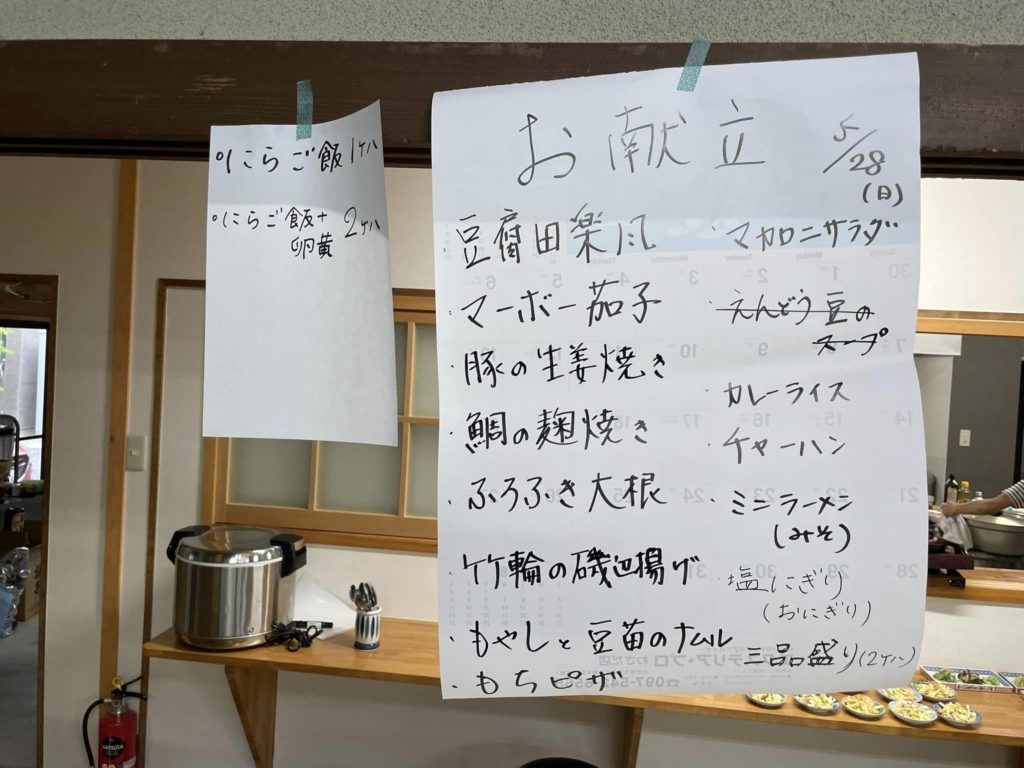 ○にらご飯 1ケハ
○にらご飯+ 2ケハ
卵黄
お献立 5/28
(日)
豆腐田楽風
・マーボー茄子
・豚の生姜焼き
・鯛の麹焼き
・ふろふき大根
・竹輪の磯辺揚げ
・もやしと豆苗のナムル
・もちピザ
・マカロニサラダ
・えんどう豆の
スープ
・カレーライス
・チャーハン
・ミニラーメン
(みそ)
・塩にぎり
(おにぎり)
三品盛り(2ケハ)
HATSUTA